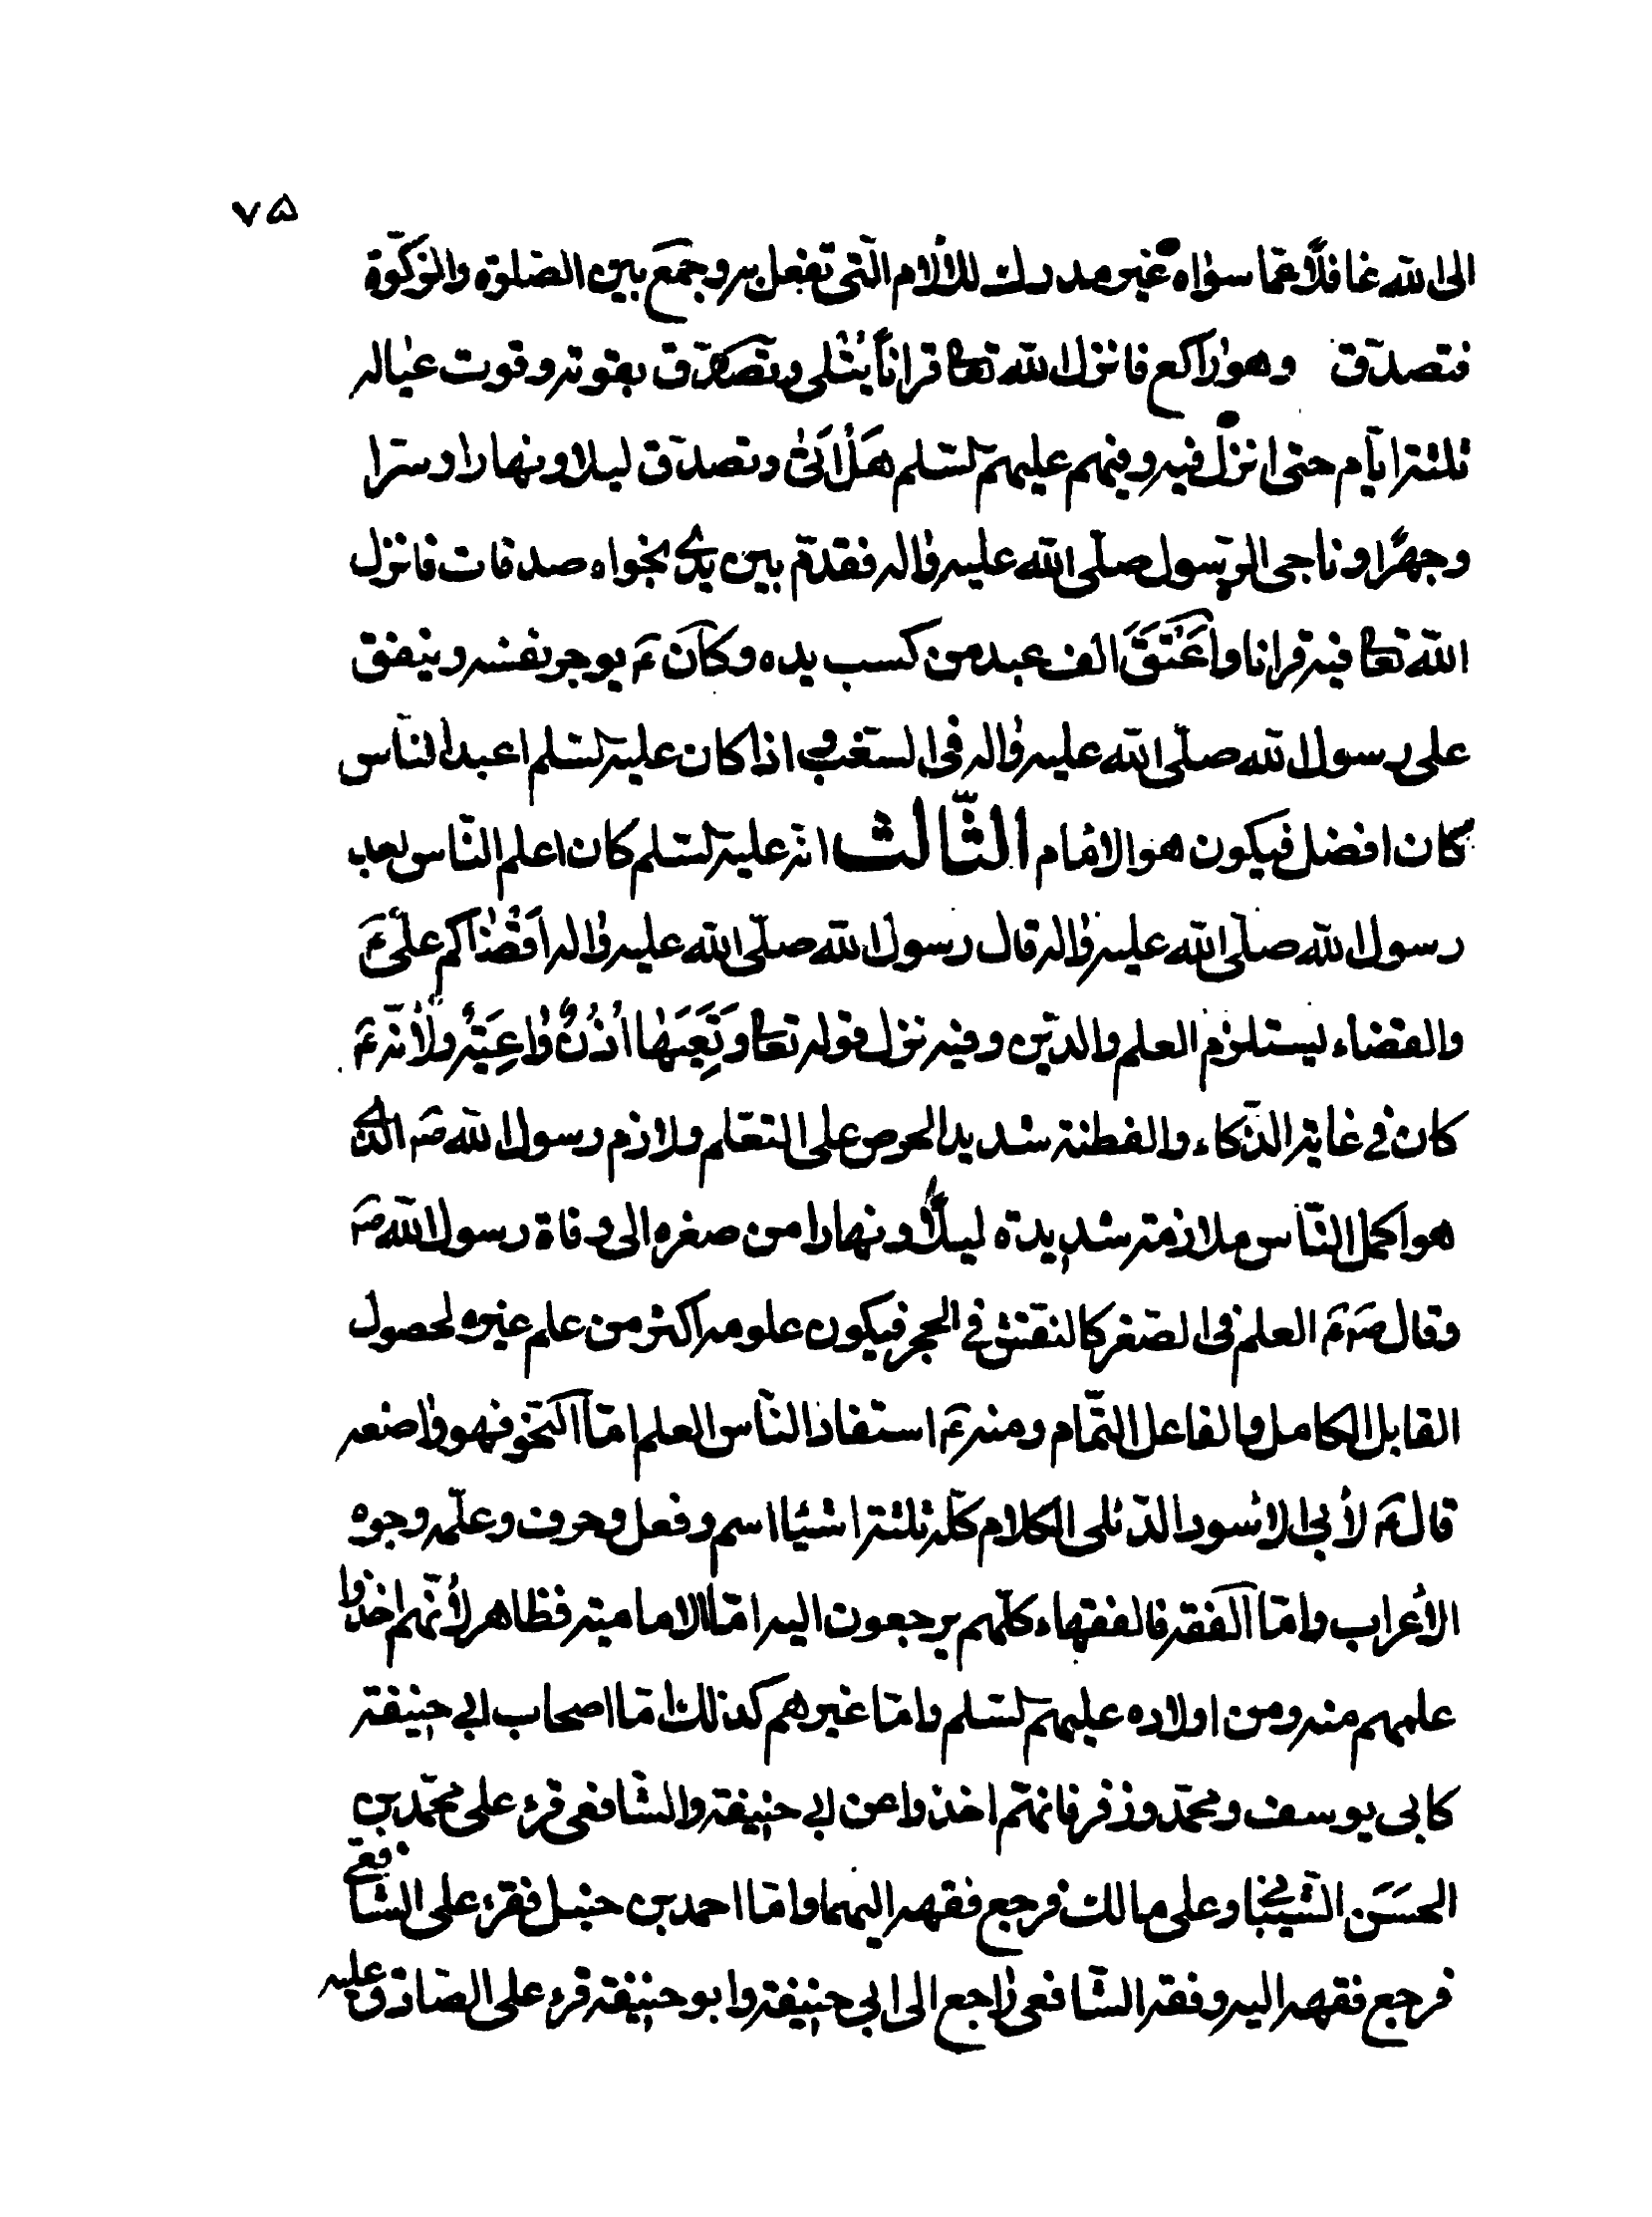 ٧۵
الى الله غافلًا عمّا سواه غير مدرك للألام الّتى تفعل به وجمع بين الصّلوة والزّكوة
فتصدّق وهو راكع فانزل الله تعا قرانًا يُتْلى وتصدّق بقوته وقوت عياله
ثلثة ايّام حتى انزل فيه وفيهم عليهم السّلم هَلْ اَتىٰ وتصدّق ليلا ونهارا وسرّا
وجهرًا وناجى الرّسول صلّى الله عليه واله فقدّم بين يدى نجواه صدقات فانزل
الله تعا فيه قرانا واَعْتَقَ الف عبد من كسب يده وكان عَ يوجر نفسه وينفق
على رسول الله صلّى الله عليه واله فى الشّعب و اذا كان عليه السّلم اعبد النّاس
كان افضل فيكون هو الامام الثّالث انّه عليه السّلم كان اعلم النّاس بعد
رسول الله صلّى الله عليه واله قال رسول الله صلّى الله عليه واله اَقْضاكم علىّ عَ
والقضاء يستلزم العلم والدّين وفيه نزل قوله تعا وَتَعِيَهٰا اُذُنٌ وٰاعِيَةٌ ولأنّه عَ
كان فى غاية الذّكاء والفطنة شديد الحرص على التعلّم ولازم رسول الله صَ الّذى
هو اكمل النّاس ملازمة شديدة ليلًا ونهارا من صغره الى وفاة رسول الله صَ
وقال صَ عَ العلم فى الصّغر كالنقش فى الحجر فيكون علومه اكثر من علم غيره لحصول
القابل الكامل والفاعل التّمام ومنه عَ استفاد النّاس العلم امّا النّحو فهو واضعه
قال عَ لأبى الاسود الدّئلى الكلام كلّه ثلثة اشيا اسم وفعل وحرف وعلّمه وجوه
الأعراب وامّا الفقه فالفقهاء كلّهم يرجعون اليه امّا الاماميّة فظاهر لأنّهم اخذوا
علمهم منه ومن اولاده عليهم السّلم وامّا غيرهم كذلك امّا اصحاب ابي حنيفة
كابى يوسف ومحمّد وزفر فانهّم اخذوا عن ابي حنيفة والشّافعى قرء على محمّد بن
الحسَن الشّيبانى وعلى مالك فرجع فقهه اليهما وامّا احمد بن حنبل فقرء على الشّافعى
فرجع فقهه اليه وفقه الشّافعى راجع الى ابي حنيفة وابو حنيفة قرء على الصّادق عليه